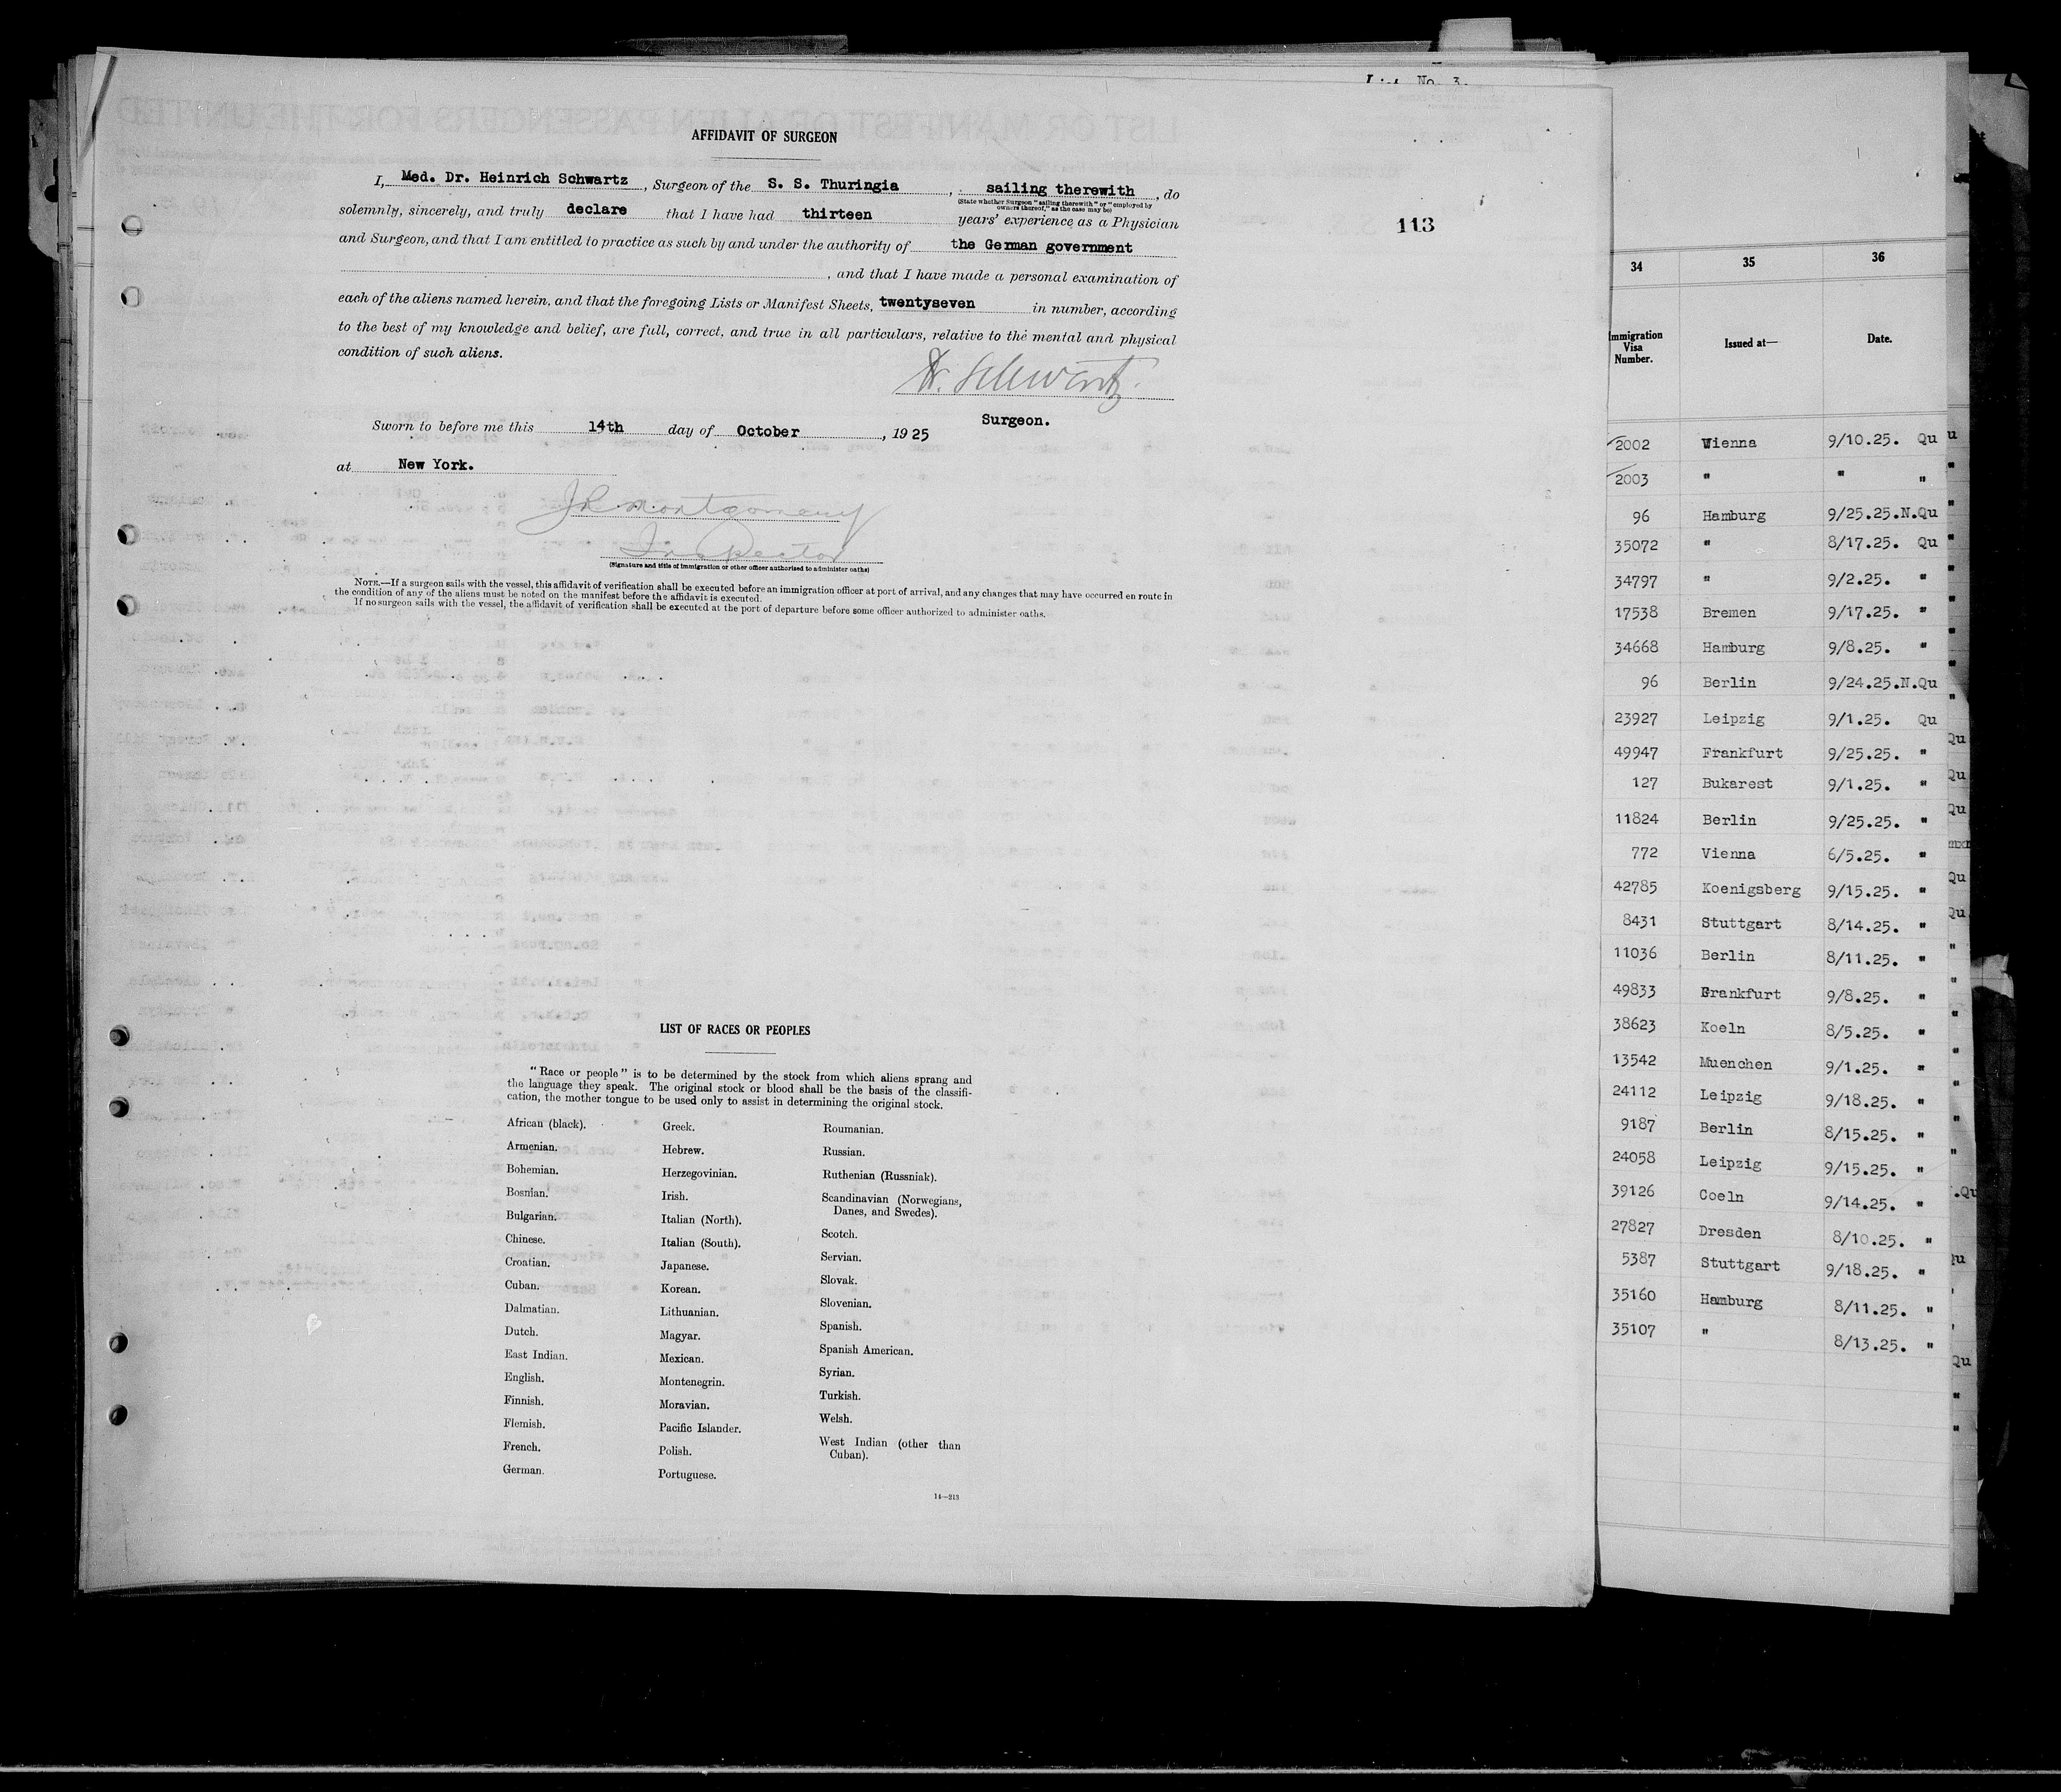 List No. 3.
AFFIDAVIT OF SURGEON
I, Med. Dr. Heinrich Schwartz, Surgeon of the S. S. Thuringia, sailing therewith, do
(State whether Surgeon "sailing therewith" or "employed by
owners thereof," as the case may be)
solemnly, sincerely, and truly declare that I have had thirteen years' experience as a Physician
and Surgeon, and that I am entitled to practice as such by and under the authority of the German government
, and that I have made a personal examination of
each of the aliens named herein, and that the foregoing Lists or Manifest Sheets, twentyseven in number, according
to the best of my knowledge and belief, are full, correct, and true in all particulars, relative to the mental and physical
condition of such aliens.
Dr. Schwartz.
Surgeon.
Sworn to before me this 14th day of October, 1925
at New York.
J R Montgomery
Inspector
(Signature and title of immigration or other officer authorized to administer oaths)
NOTE.—If a surgeon sails with the vessel, this affidavit of verification shall be executed before an immigration officer at port of arrival, and any changes that may have occurred en route in
the condition of any of the aliens must be noted on the manifest before the affidavit is executed.
If no surgeon sails with the vessel, the affidavit of verification shall be executed at the port of departure before some officer authorized to administer oaths.
113
LIST OF RACES OR PEOPLES
"Race or people" is to be determined by the stock from which aliens sprang and
the language they speak. The original stock or blood shall be the basis of the classifi-
cation, the mother tongue to be used only to assist in determining the original stock.
African (black).
Armenian.
Bohemian.
Bosnian.
Bulgarian.
Chinese.
Croatian.
Cuban.
Dalmatian.
Dutch.
East Indian.
English.
Finnish.
Flemish.
French.
German.
Greek.
Hebrew.
Herzegovinian.
Irish.
Italian (North).
Italian (South).
Japanese.
Korean.
Lithuanian.
Magyar.
Mexican.
Montenegrin.
Moravian.
Pacific Islander.
Polish.
Portuguese.
Roumanian.
Russian.
Ruthenian (Russniak).
Scandinavian (Norwegians,
Danes, and Swedes).
Scotch.
Servian.
Slovak.
Slovenian.
Spanish.
Spanish American.
Syrian.
Turkish.
Welsh.
West Indian (other than
Cuban).
14—213
34 35 36
Immigration
Visa
Number.
Issued at—
Date.
2002 Vienna 9/10.25. Qu
2003 " " "
96 Hamburg 9/25.25.N.Qu
35072 " 8/17.25. Qu
34797 " 9/2.25. "
17538 Bremen 9/17.25. "
34668 Hamburg 9/8.25. "
96 Berlin 9/24.25.N.Qu
23927 Leipzig 9/1.25. Qu
49947 Frankfurt 9/25.25. "
127 Bukarest 9/1.25. "
11824 Berlin 9/25.25. "
772 Vienna 6/5.25. "
42785 Koenigsberg 9/15.25. "
8431 Stuttgart 8/14.25. "
11036 Berlin 8/11.25. "
49833 Frankfurt 9/8.25. "
38623 Koeln 8/5.25. "
13542 Muenchen 9/1.25. "
24112 Leipzig 9/18.25. "
9187 Berlin 8/15.25. "
24058 Leipzig 9/15.25. "
39126 Coeln 9/14.25. "
27827 Dresden 8/10.25. "
5387 Stuttgart 9/18.25. "
35160 Hamburg 8/11.25. "
35107 " 8/13.25. "